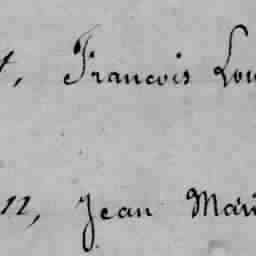 François Lou
12, Jean Mari